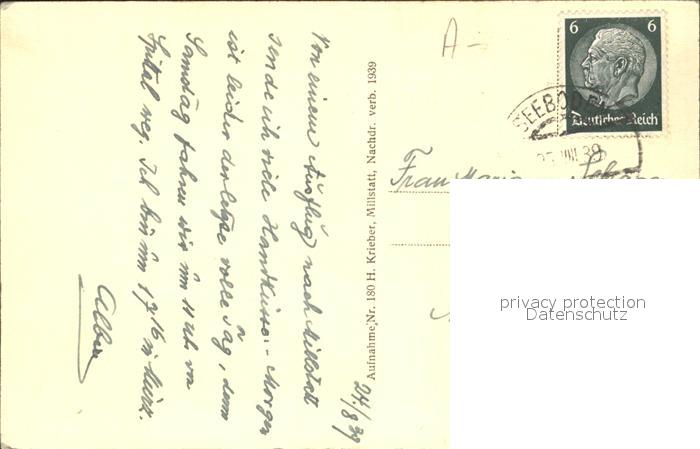 A-
6 6
Deutsches Reich
SEEBODEN
25. VIII. 39
24./8 39
Von einem Ausflug nach Millstatt
sende ich viele Handküsse. - Morgen
ist leider der letzte volle Tag, denn
Samstag fahren wir um 11 Uhr von
Spittal weg. Ich bin um
Aufnahme, Nr. 180 H. Krieber, Millstatt, Nachdr. verb. 1939
Frau Maria
privacy protection
Datenschutz